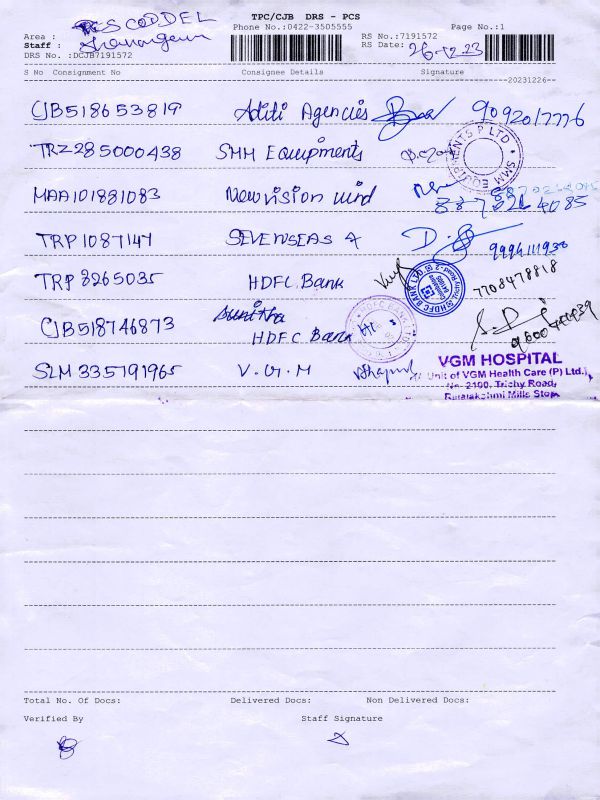 TPC/CJB DRS - PCS
Phone No.:0422-3505555 Page No.:1
Area :
Staff : RS No.:7191572
RS Date: 26-12-23
DRS No. :DCJB7191572
S No Consignment No Consignee Details Signature
20231226
CJB518653819 Aditi Agencies 9092017776
TRZ285000438 SMM Equipments
SMM EQUIPMENTS P LTD
MAA101881083 Newvision wind
TRP1087147 SEVENSEAS 4 9994111930
TRP8265035 HDFC Bank 7708478818
HDFC BANK LTD
CJB518746873 Sunitha
HDFC Bank
SLM335791965 V.G.M
VGM HOSPITAL
Unit of VGM Health Care (P) Ltd.,
No. 2100, Trichy Road,
Rajalakshmi Mills Stop
Total No. Of Docs: Delivered Docs: Non Delivered Docs:
Verified By Staff Signature